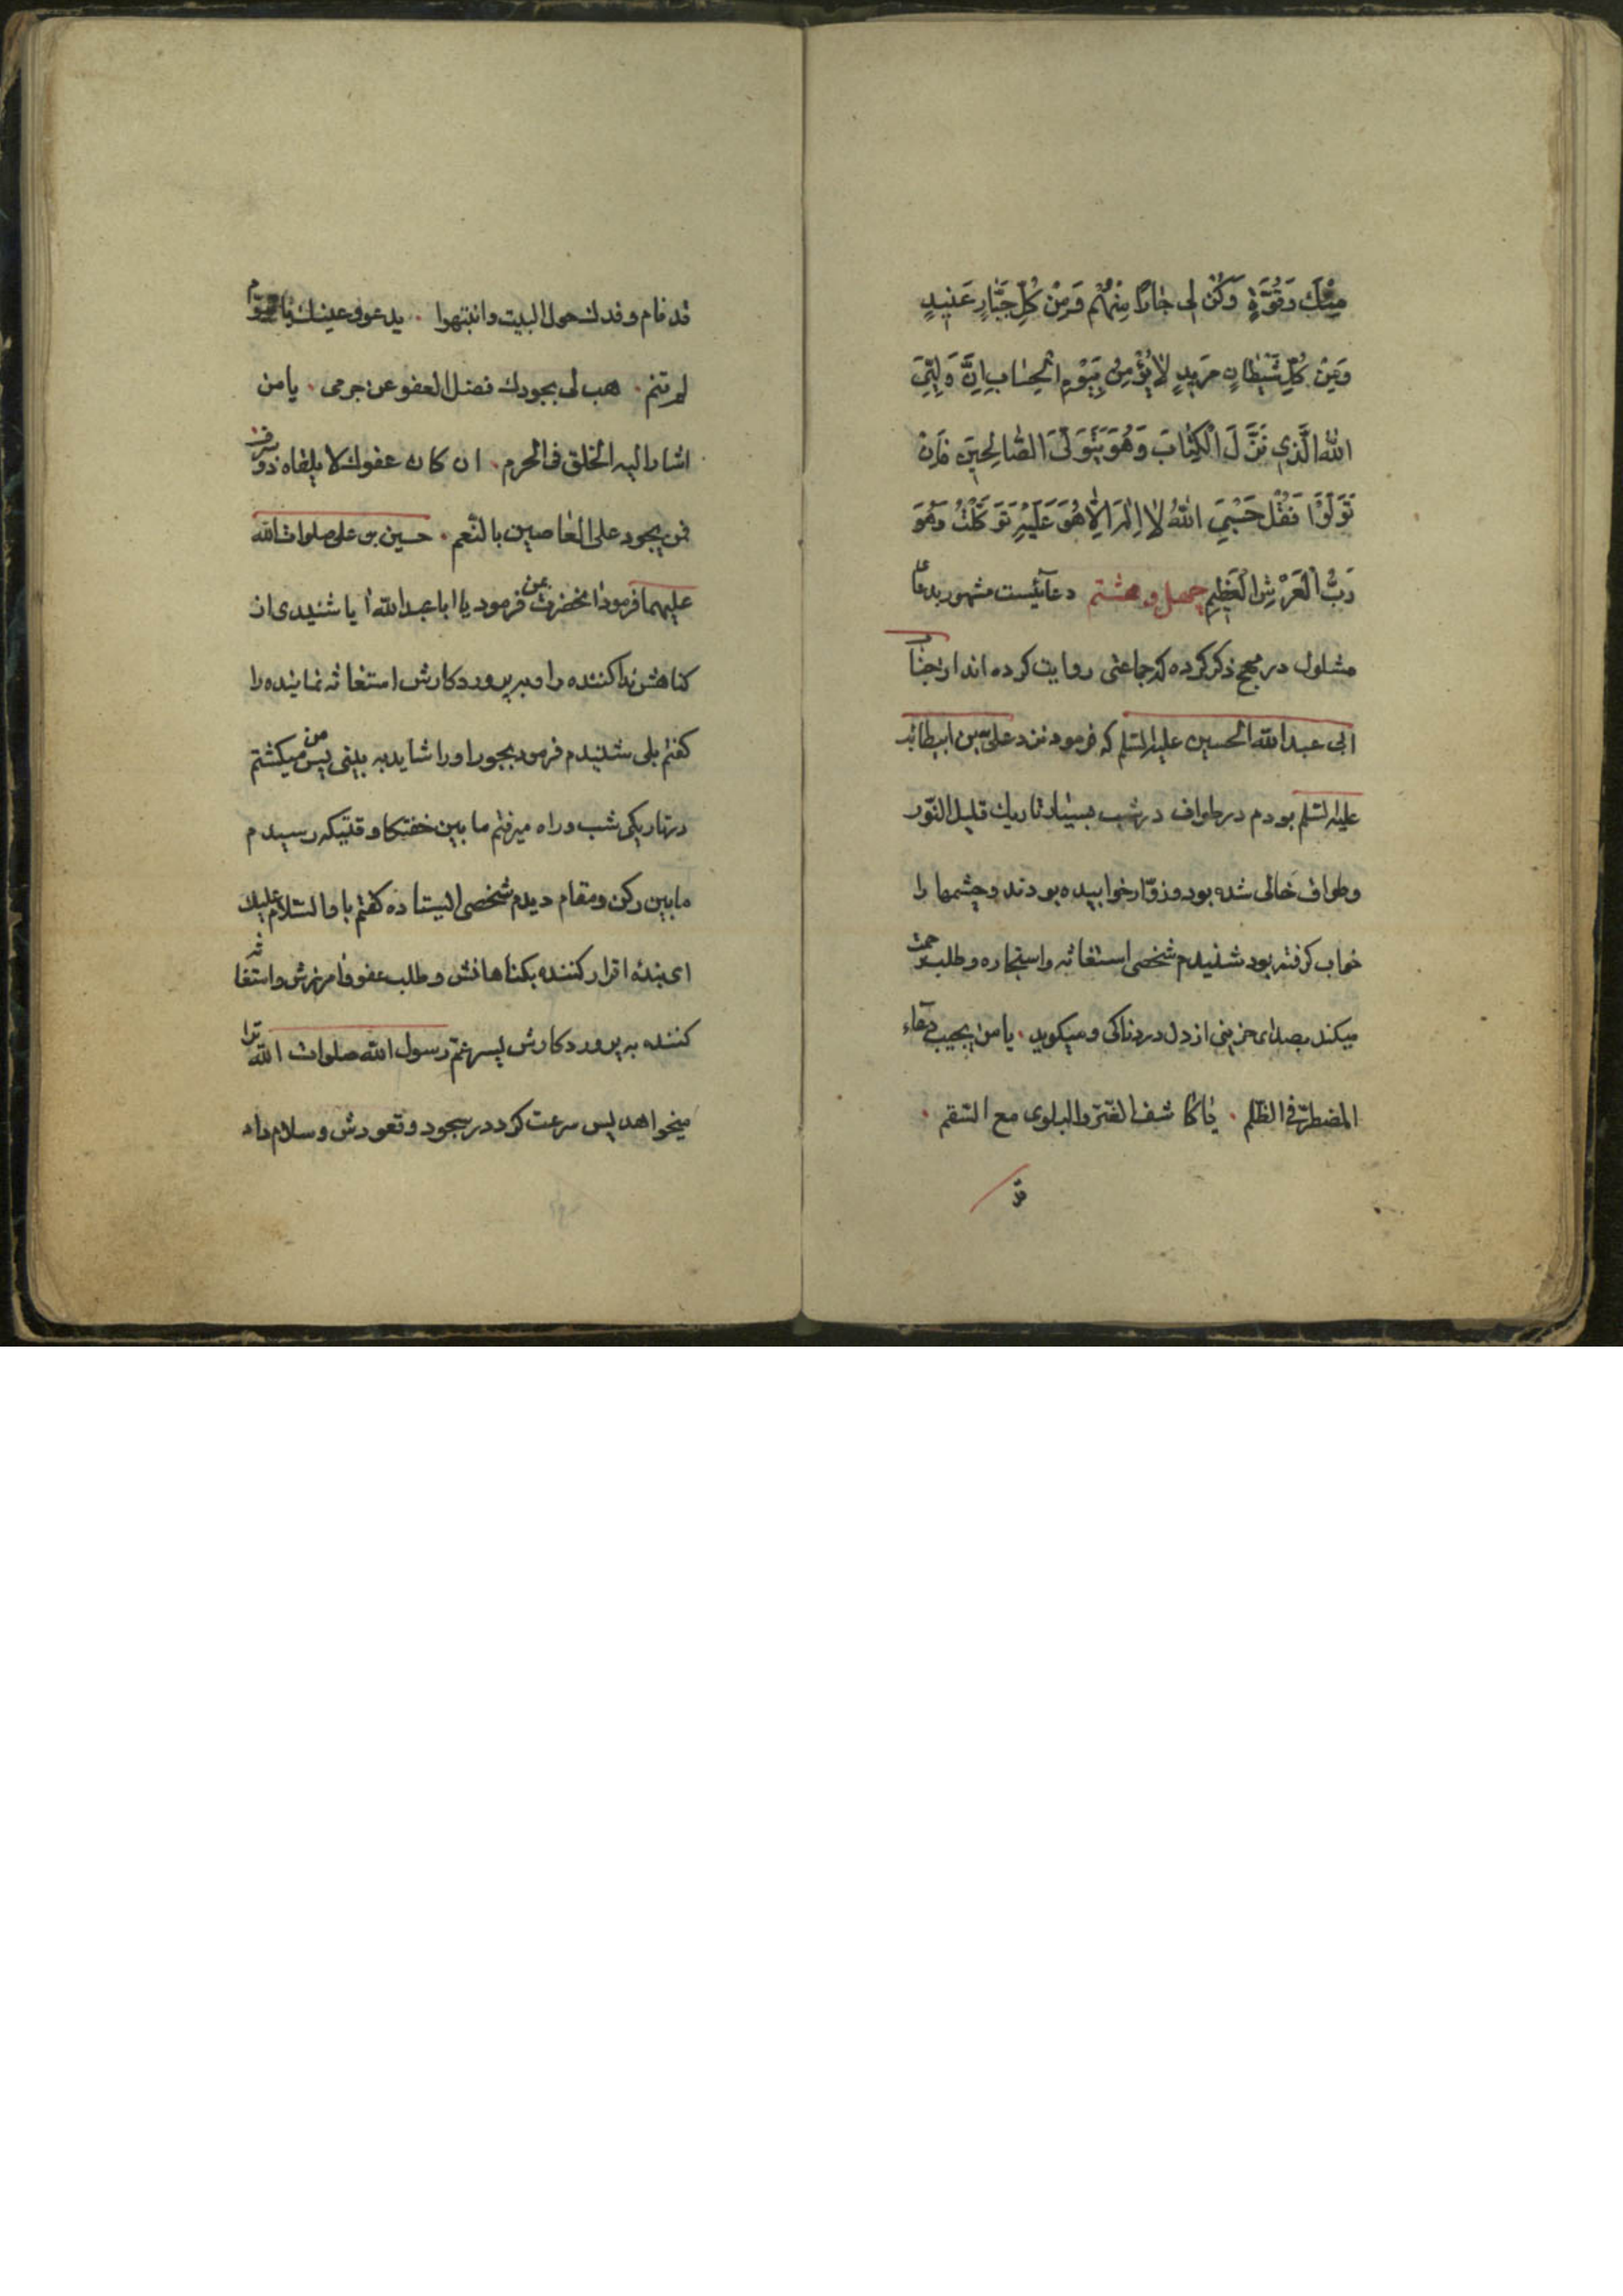 مِنْكَ وَقُوَّةٍ وَكُنْ لِی جٰارًا مِنْهُمْ وَمِنْ كُلِّ جَبّٰارٍ عَنٖیدٍ
وَمِنْ كُلِّ شَیْطٰانٍ مَرٖیدٍ لٰا یُؤْمِنُ بِیَوْمِ الْحِسٰابِ اِنَّ وَلِیِّیَ
اللّٰهُ الَّذٖی نَزَّلَ الْكِتٰابَ وَهُوَ یَتَوَلَّی الصّٰالِحٖینَ فَاِنْ
تَوَلَّوْا فَقُلْ حَسْبِیَ اللّٰهُ لٰا اِلٰهَ اِلّٰا هُوَ عَلَیْهِ تَوَكَّلْتُ وَهُوَ
رَبُّ الْعَرْشِ الْعَظٖیمِ چهل و هشتم دعائیست مشهور بدعای
مشلول در مهج ذکر کرده که جماعتی روایت کرده اند از جناب
ابی عبدالله الحسین علیه السلم که فرمود نزد علی بن ابیطالب
علیه السلم بودم در طواف در شب بسیار تاریك قلیل النّور
وطواف خالی شده بود وزوّار خوابیده بودند وچشمها را
خواب کرفته بود شنیدم شخصی استغاثه واستجاره وطلب رحمت
میکند بصدای حزینی از دل دردناکی ومیکوید · یا من یجیب دعاء
المضطرّ فی الظلم · یا کاشف الضرّ والبلوی مع السّقم ·
قد
قد نام وفدك حول البیت وانتبهوا · یدعو وعینك یا قیّوم
لم تنم · هب لی بجودك فضل العفو عن جرمی · یا من
اشار الیه الخلق فی الحرم · ان کان عفوك لا یلقاه ذو سرف
فمن یجود علی العاصین بالنّعم · حسین بن علی صلوات الله
علیهما فرمود انحضرت بمن فرمود یا ابا عبدالله آیا شنیدی از
کناهش ندا کننده را وبر پروردکارش استغاثه نماینده را
کفتم بلی شنیدم فرمود بجو او را شاید به بینی پس من میکشتم
در تاریکی شب وراه میرفتم ما بین خفتکا وقتیکه رسیدم
ما بین رکن ومقام دیدم شخصی ایستاده کفتم باو السّلام علیك
ای بنده اقرار کننده بکناهانش وطلب عفو وآمرزش واستغاثه
کننده به پروردکارش پسر عمّ رسول الله صلوات الله ترا
میخواهد پس سرعت کرد در سجود وقعودش وسلام داد